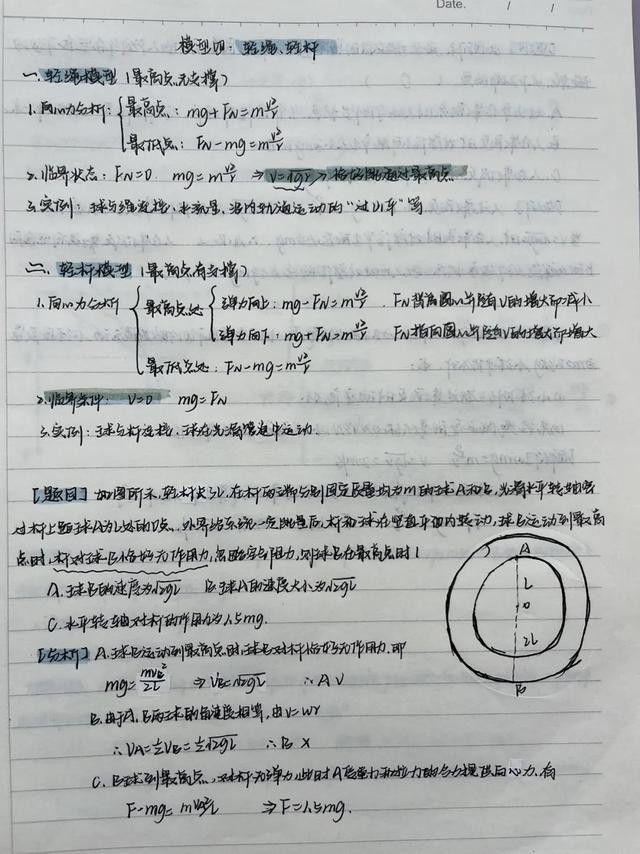 Date. / /
模型四：轻绳、轻杆
一. 轻绳模型（最高点无支撑）
1. 向心力分析：{最高点：mg+FN=m v²/r
最低点：FN-mg=m v²/r
2. 临界状态：FN=0 mg=m v²/r ⇒ v=√gr ⇒ 恰好能通过最高点
3. 实例：球与绳连接，水流星，沿内轨道运动的“过山车”等
二. 轻杆模型（最高点有支撑）
1. 向心力分析 {最高点处 {弹力向上：mg-FN=m v²/r . FN背离圆心且随V的增大而减小
弹力向下：mg+FN=m v²/r FN指向圆心且随V的增大而增大
最低点处：FN-mg=m v²/r
2. 临界条件：V=0 mg=FN
3. 实例：球与杆连接，球在光滑管道中运动.
[题目] 如图所示，轻杆长3L，在杆两端分别固定质量均为m的球A和B，光滑水平转轴穿
过杆上距球A为L处的O点，外界给系统一定能量后，杆和球在竖直平面内转动，球B运动到最高
点时，杆对球B恰好无作用力，忽略空气阻力，则球B在最高点时（
A. 球B的速度为√2gL B. 球A的速度大小为√2gL
C. 水平转轴对杆的作用力为1.5mg.
[分析] A. 球B运动到最高点时球B对杆恰好无作用力，即
mg=mvB²/2L ⇒ VB=√2gL ∴A √
B. 由于A、B两球的角速度相等，由v=wr
∴VA=½VB=½√2gL ∴B ×
C. B球到最高点，对杆无弹力，此时A受重力和拉力的合力提供向心力，有
F-mg=m vA²/L ⇒ F=1.5mg.
A
L
O
2L
B